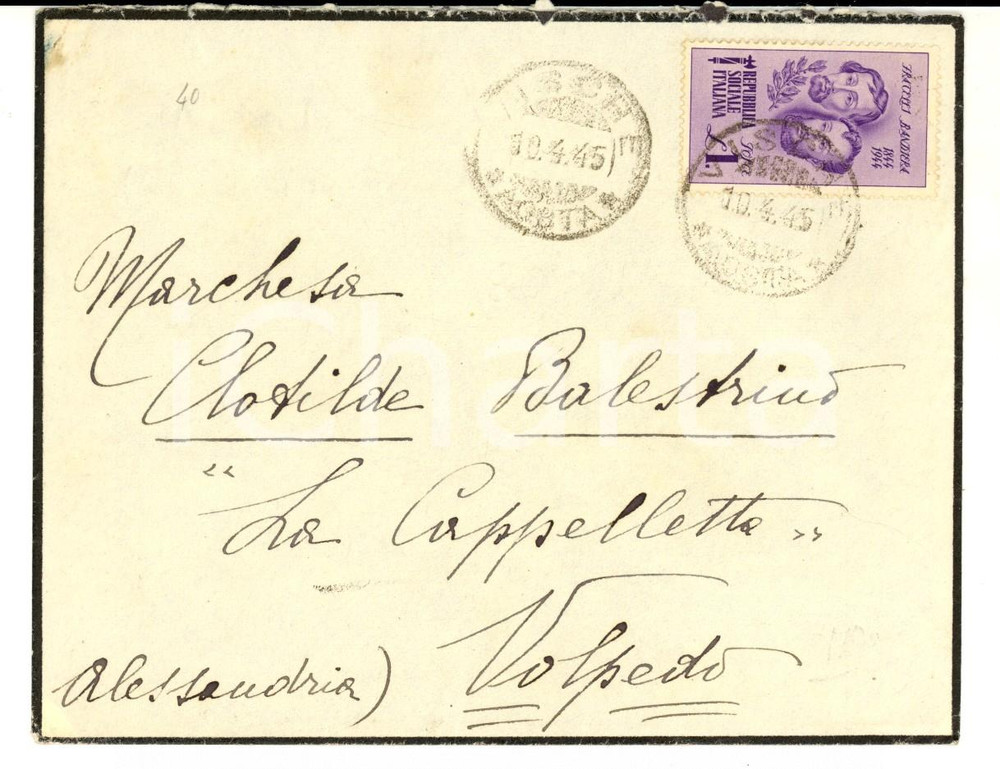 40
LISSONE
10.4.45
AOSTA
FRATELLI BANDIERA
1844
1944
REPUBBLICA
SOCIALE
ITALIANA
L1.
10.4.45
Marchesa
Clotilde Balestrino
"La Cappelletta"
Volpedo
Alessandria)
iCharta